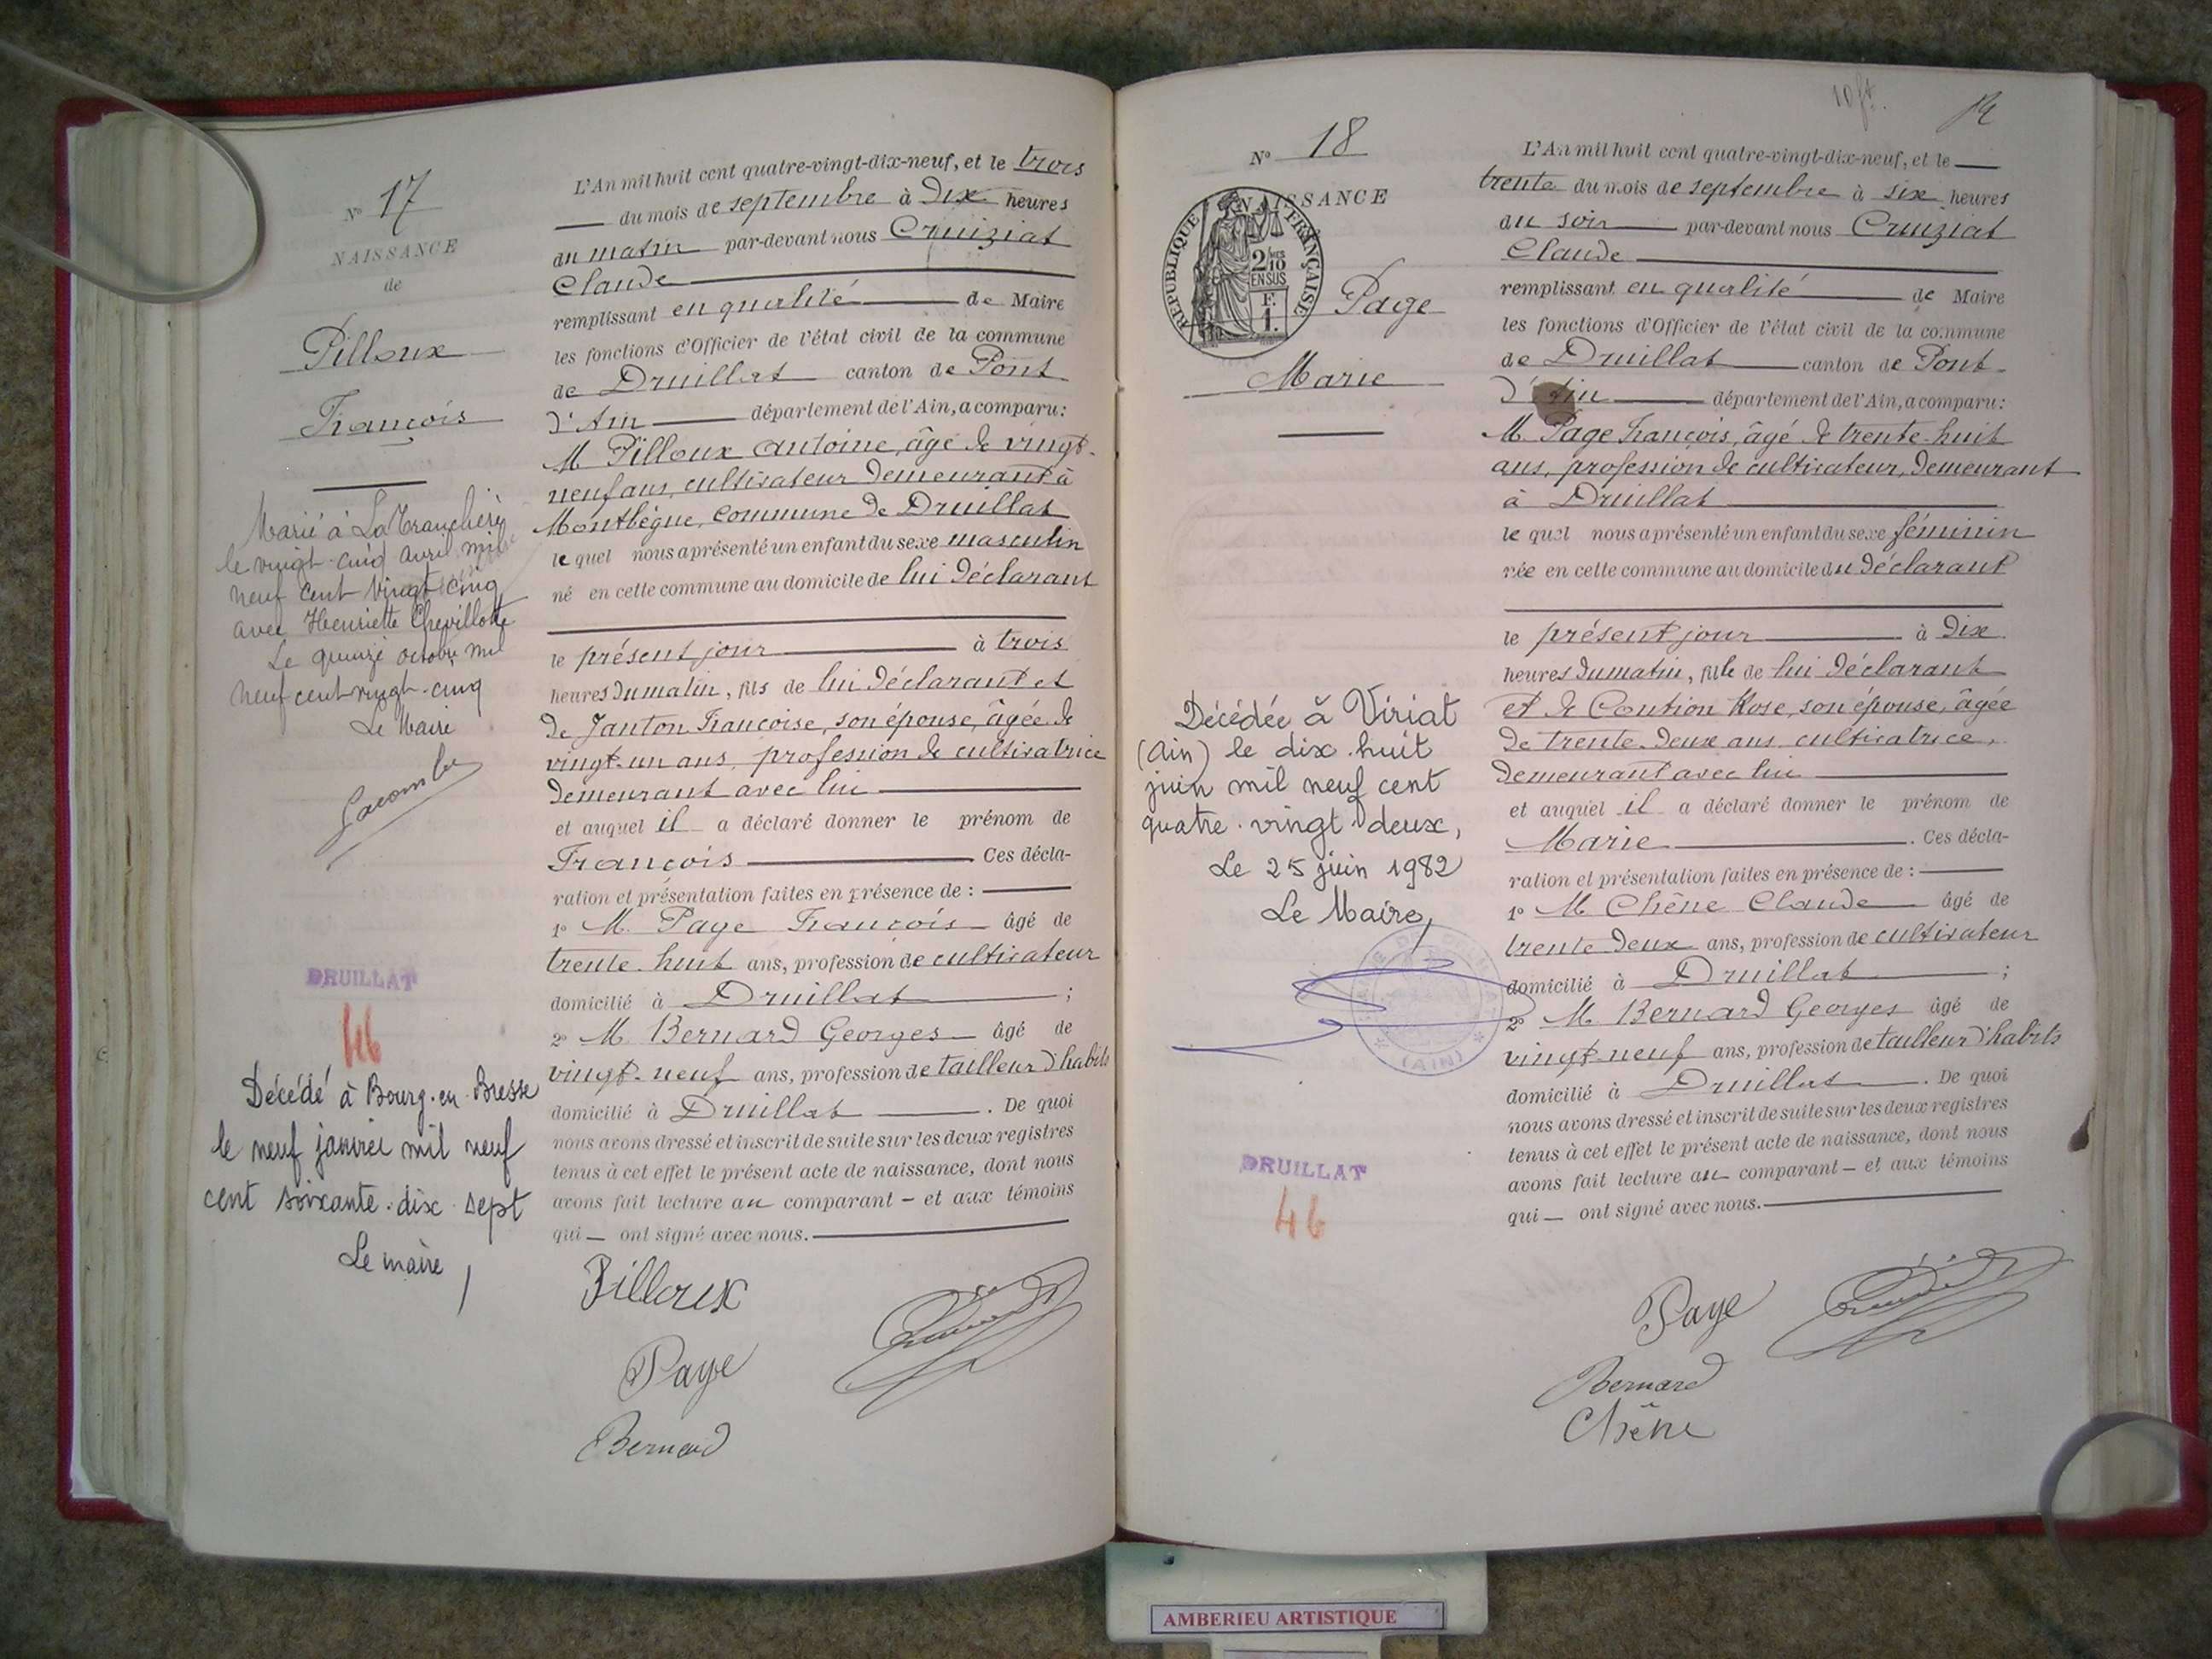 N° 17
NAISSANCE
de
Pilloux
François
Marié à La Tranclière
le vingt-cinq avril mil
neuf cent vingt cinq
avec Henriette Chevillotte
Le quinze octobre mil
neuf cent vingt-cinq
Le Maire
DRUILLAT
46
Décédé à Bourg-en-Bresse
le neuf janvier mil neuf
cent soixante-dix-sept
Le maire,
L'An mil huit cent quatre-vingt-dix-neuf, et le trois
du mois de septembre à dix heures
du matin par-devant nous Cruiziat
Claude
remplissant en qualité de Maire
les fonctions d'Officier de l'état civil de la commune
de Druillat canton de Pont
d'Ain département de l'Ain, a comparu:
M Pilloux Antoine, âgé de vingt-
neuf ans, cultivateur demeurant à
Montbègue, commune de Druillat
lequel nous a présenté un enfant du sexe masculin
né en cette commune au domicile de lui déclarant
le présent jour à trois
heures du matin, fils de lui déclarant et
de Janton Françoise, son épouse, âgée de
vingt-un ans, profession de cultivatrice
demeurant avec lui
et auquel il a déclaré donner le prénom de
François Ces décla-
ration et présentation faites en présence de :
1° M. Page François âgé de
trente-huit ans, profession de cultivateur
domicilié à Druillat ;
2° M Bernard Georges âgé de
vingt-neuf ans, profession de tailleur d'habits
domicilié à Druillat . De quoi
nous avons dressé et inscrit de suite sur les deux registres
tenus à cet effet le présent acte de naissance, dont nous
avons fait lecture au comparant – et aux témoins
qui – ont signé avec nous.
Pilloux
Page
Bernard
10 ft.
N° 18
NAISSANCE
RÉPUBLIQUE FRANÇAISE
2/10
EN SUS
F.
1.
Page
Marie
Décédée à Viriat
(Ain) le dix-huit
juin mil neuf cent
quatre-vingt deux,
Le 25 juin 1982
Le Maire,
(AIN)
DRUILLAT
46
L'An mil huit cent quatre-vingt-dix-neuf, et le
trente du mois de septembre à six heures
du soir par-devant nous Cruiziat
Claude
remplissant en qualité de Maire
les fonctions d'Officier de l'état civil de la commune
de Druillat canton de Pont-
d'Ain département de l'Ain, a comparu:
M. Page François, âgé de trente-huit
ans, profession de cultivateur, demeurant
à Druillat
lequel nous a présenté un enfant du sexe féminin
née en cette commune au domicile du déclarant
le présent jour à dix
heures du matin, fille de lui déclarant
et de Rose, son épouse, âgée
de trente-deux ans, cultivatrice,
demeurant avec lui
et auquel il a déclaré donner le prénom de
Marie . Ces décla-
ration et présentation faites en présence de :
1° M Chêne Claude âgé de
trente deux ans, profession de cultivateur
domicilié à Druillat ;
2° M. Bernard Georges âgé de
vingt-neuf ans, profession de tailleur d'habits
domicilié à Druillat . De quoi
nous avons dressé et inscrit de suite sur les deux registres
tenus à cet effet le présent acte de naissance, dont nous
avons fait lecture au comparant – et aux témoins
qui – ont signé avec nous.
Page
Bernard
Chêne
AMBERIEU ARTISTIQUE